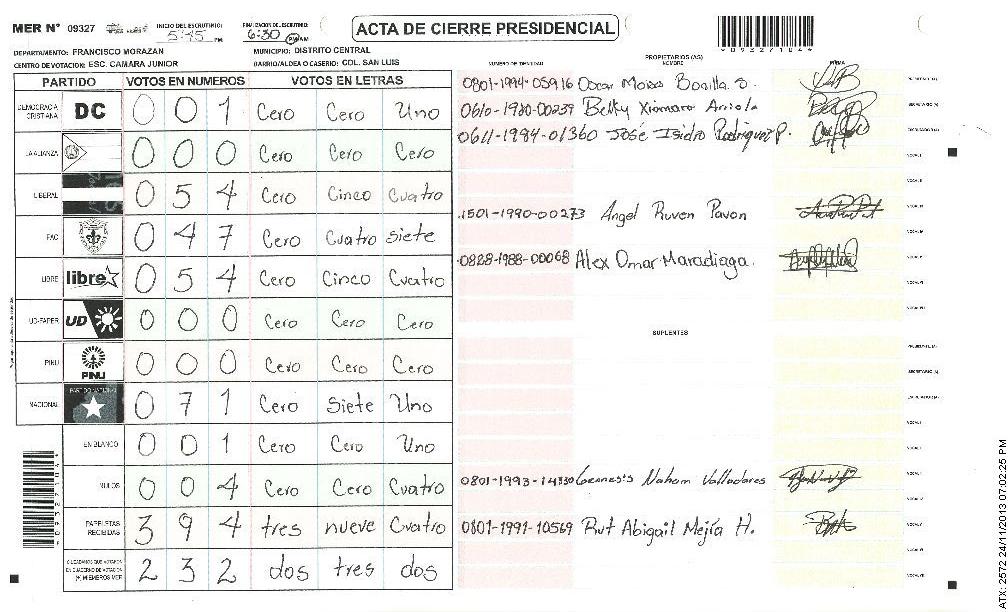 MER N° 09327 INICIO DEL ESCRUTINIO: 5:45 PM FINALIZACION DEL ESCRUTINIO: 6:30 PM AM ACTA DE CIERRE PRESIDENCIAL
DEPARTAMENTO: FRANCISCO MORAZAN MUNICIPIO: DISTRITO CENTRAL
CENTRO DE VOTACION: ESC. CAMARA JUNIOR BARRIO/ALDEA O CASERIO: COL. SAN LUIS
NUMERO DE IDENTIDAD PROPIETARIOS (AS) NOMBRE FIRMA
PARTIDO VOTOS EN NUMEROS VOTOS EN LETRAS
0801-1994-05916 Oscar Moises Bonilla S.
DEMOCRACIA CRISTIANA DC 0 0 1 Cero Cero Uno
0610-1980-00239 Betky Xiomara Arriola
0611-1984-01360 José Isidro Rodriguez P.
LA ALIANZA 0 0 0 Cero Cero Cero
LIBERAL 0 5 4 Cero Cinco Cuatro
1501-1990-00273 Angel Ruven Pavon
PAC 0 4 7 Cero Cuatro Siete
0828-1988-00068 Alex Omar Maradiaga.
LIBRE libre 0 5 4 Cero Cinco Cuatro
UD-FAPER UD 0 0 0 Cero Cero Cero
SUPLENTES
PINU PINU 0 0 0 Cero Cero Cero
NACIONAL PARTIDO NACIONAL 0 7 1 Cero Siete Uno
EN BLANCO 0 0 1 Cero Cero Uno
NULOS 0 0 4 Cero Cero Cuatro
0801-1993-14330 Gennesis Nahom Valladares
PAPELETAS RECIBIDAS 3 9 4 tres nueve Cuatro
0801-1991-10569 Rut Abigail Mejía H.
CIUDADANOS QUE VOTARON EN CUADERNO DE VOTACION (+) MIEMBROS MER 2 3 2 dos tres dos
ATX: 2572 24/11/2013 07:02:25 PM